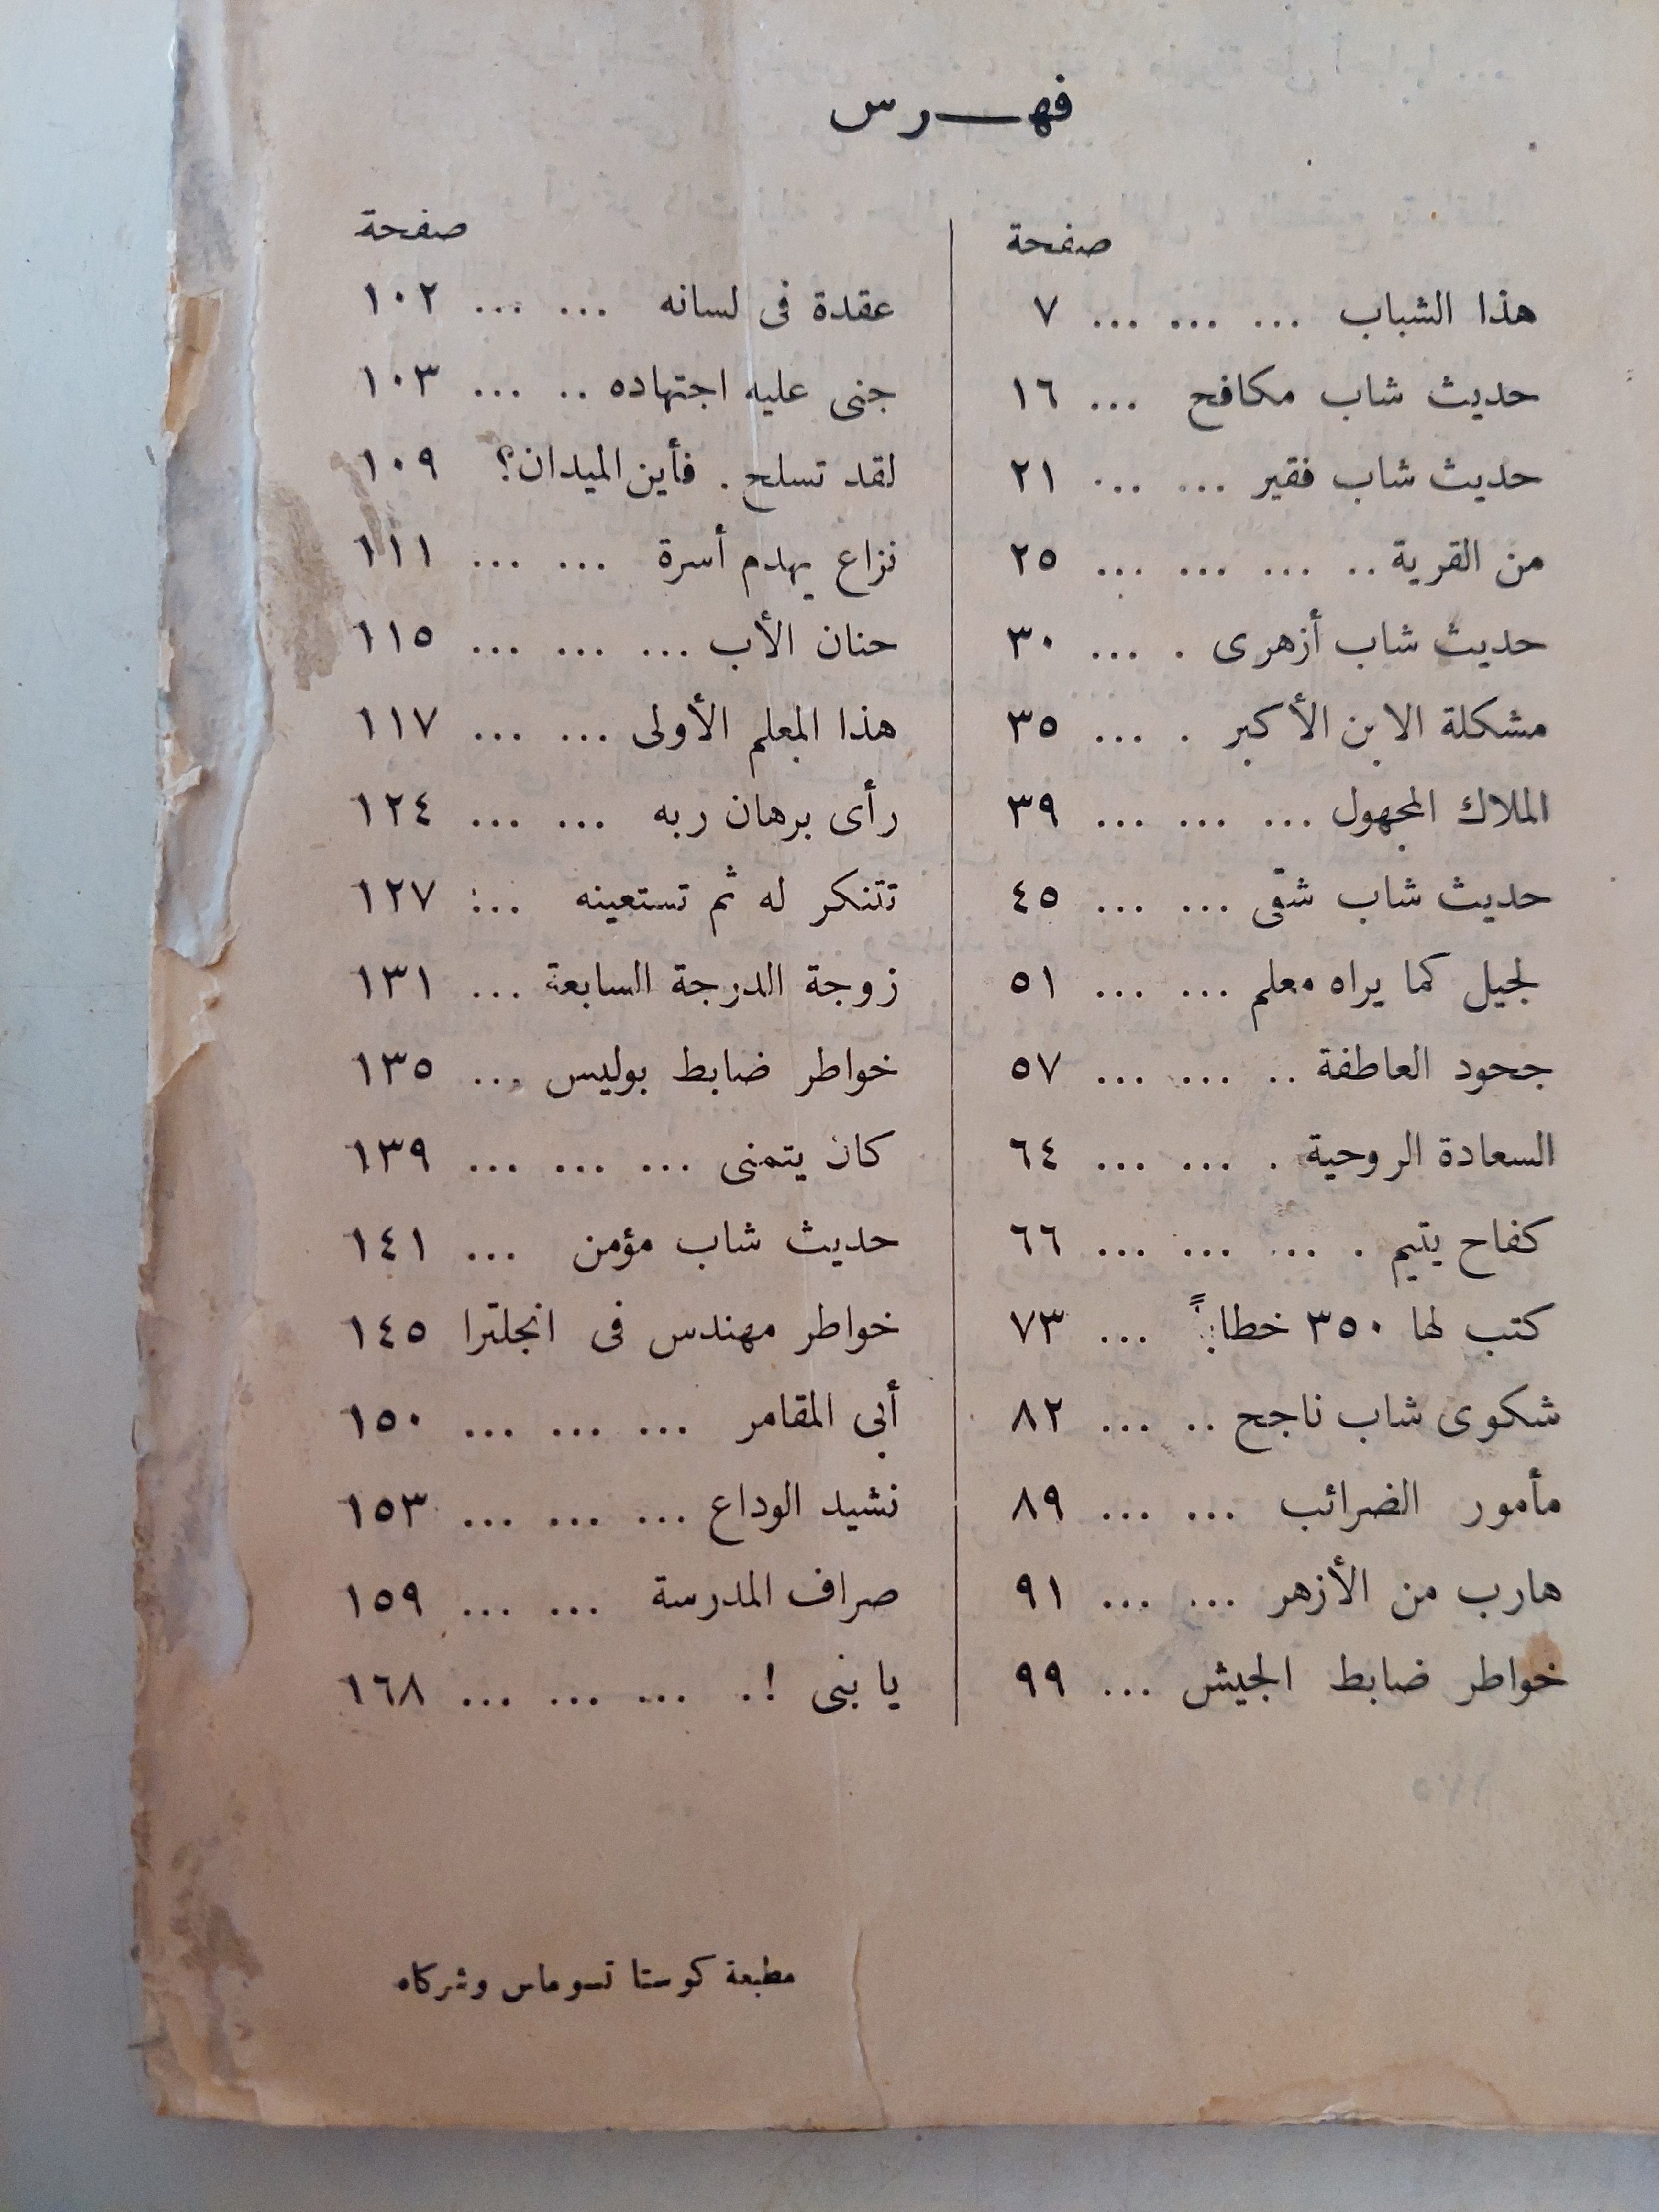 فهـــرس
صفحة
هذا الشباب ... ... ... ٧
حديث شاب مكافح ... ١٦
حديث شاب فقير ... ... ٢١
من القرية .. ... ... ... ٢٥
حديث شاب أزهرى . ... ٣٠
مشكلة الابن الأكبر . ... ٣٥
الملاك المجهول ... ... ... ٣٩
حديث شاب شقى ... ... ٤٥
لجيل كما يراه معلم ... ... ٥١
جحود العاطفة .. ... ... ٥٧
السعادة الروحية . ... ... ٦٤
كفاح يتيم . ... ... ... ٦٦
كتب لها ٣٥٠ خطاباً ... ٧٣
شكوى شاب ناجح .. ... ٨٢
مأمور الضرائب ... ... ٨٩
هارب من الأزهر ... ... ٩١
خواطر ضابط الجيش ... ٩٩
صفحة
عقدة فى لسانه ... ... ١٠٢
جنى عليه اجتهاده .. ... ١٠٣
لقد تسلح . فأين الميدان؟ ١٠٩
نزاع يهدم أسرة ... ... ١١١
حنان الأب ... ... ... ١١٥
هذا المعلم الأولى ... ... ١١٧
رأى برهان ربه ... ... ١٢٤
تتنكر له ثم تستعينه ... ١٢٧
زوجة الدرجة السابعة ... ١٣١
خواطر ضابط بوليس ... ١٣٥
كان يتمنى ... ... ... ١٣٩
حديث شاب مؤمن ... ١٤١
خواطر مهندس فى انجلترا ١٤٥
أبى المقامر ... ... ... ١٥٠
نشيد الوداع ... ... ... ١٥٣
صراف المدرسة ... ... ١٥٩
يا بنى !. ... ... ... ١٦٨
مطبعة كوستا تسوماس وشركاه